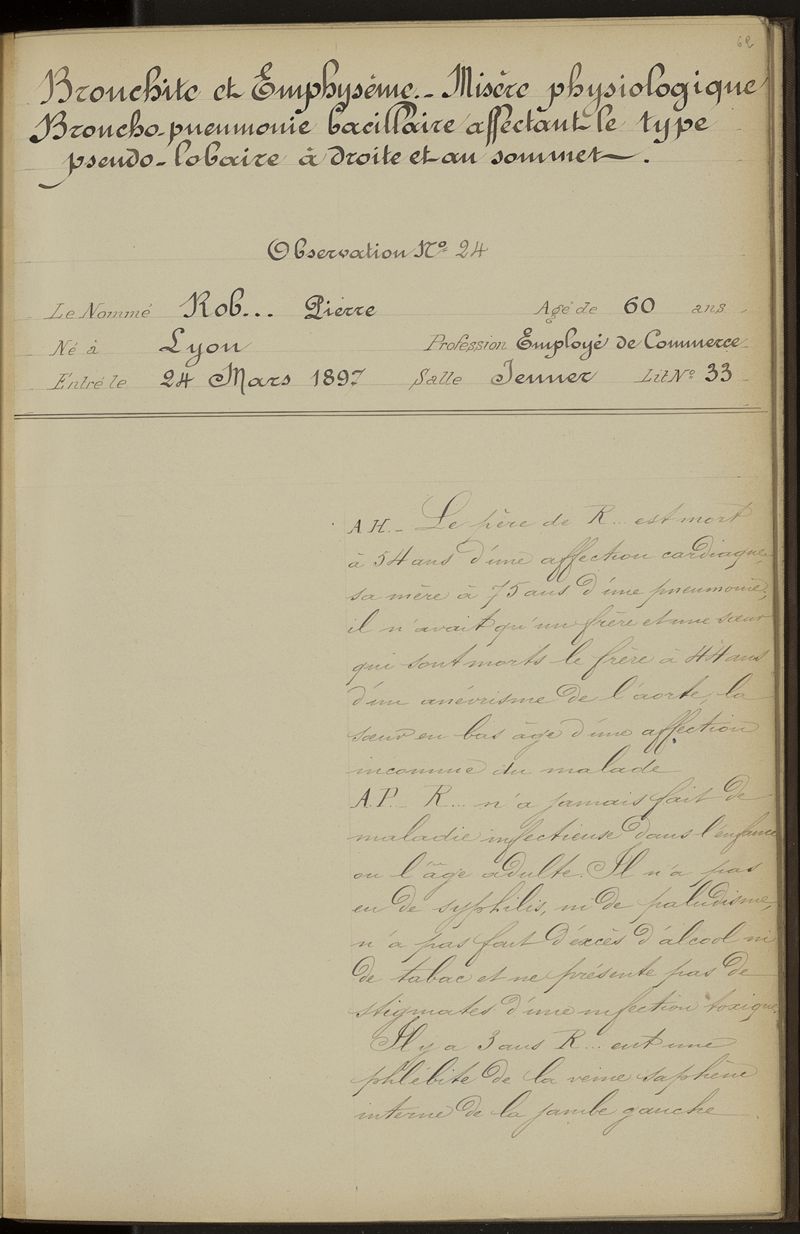 62
Bronchite et Emphysême.- Misère physiologique
Broncho-pneumonie bacillaire affectant le type
pseudo-lobaire à droite et au sommet.
Observation No. 24
Le Nommé Rob... Pierre Agé de 60 ans
Né à Lyon Profession Employé de Commerce
Entré le 24 Mars 1897 Salle Jenner Lit No 33
A.H.- Le père de R... est mort
à 54 ans d'une affection cardiaque,
sa mère à 75 ans d'une pneumonie,
il n'avait qu'un frère et une sœur
qui sont morts le frère à 44 ans
d'un anévrisme de l'aorte, la
sœur en bas âge d'une affection
inconnue du malade
A.P. R... n'a jamais fait de
maladie infectieuse dans l'enfance
ou l'âge adulte. Il n'a pas
eu de syphilis, ni de paludisme,
n'a pas fait d'excès d'alcool ni
de tabac et ne présente pas de
stigmates d'une infection toxique.
Il y a 3 ans R... eut une
phlébite de la veine saphène
interne de la jambe gauche